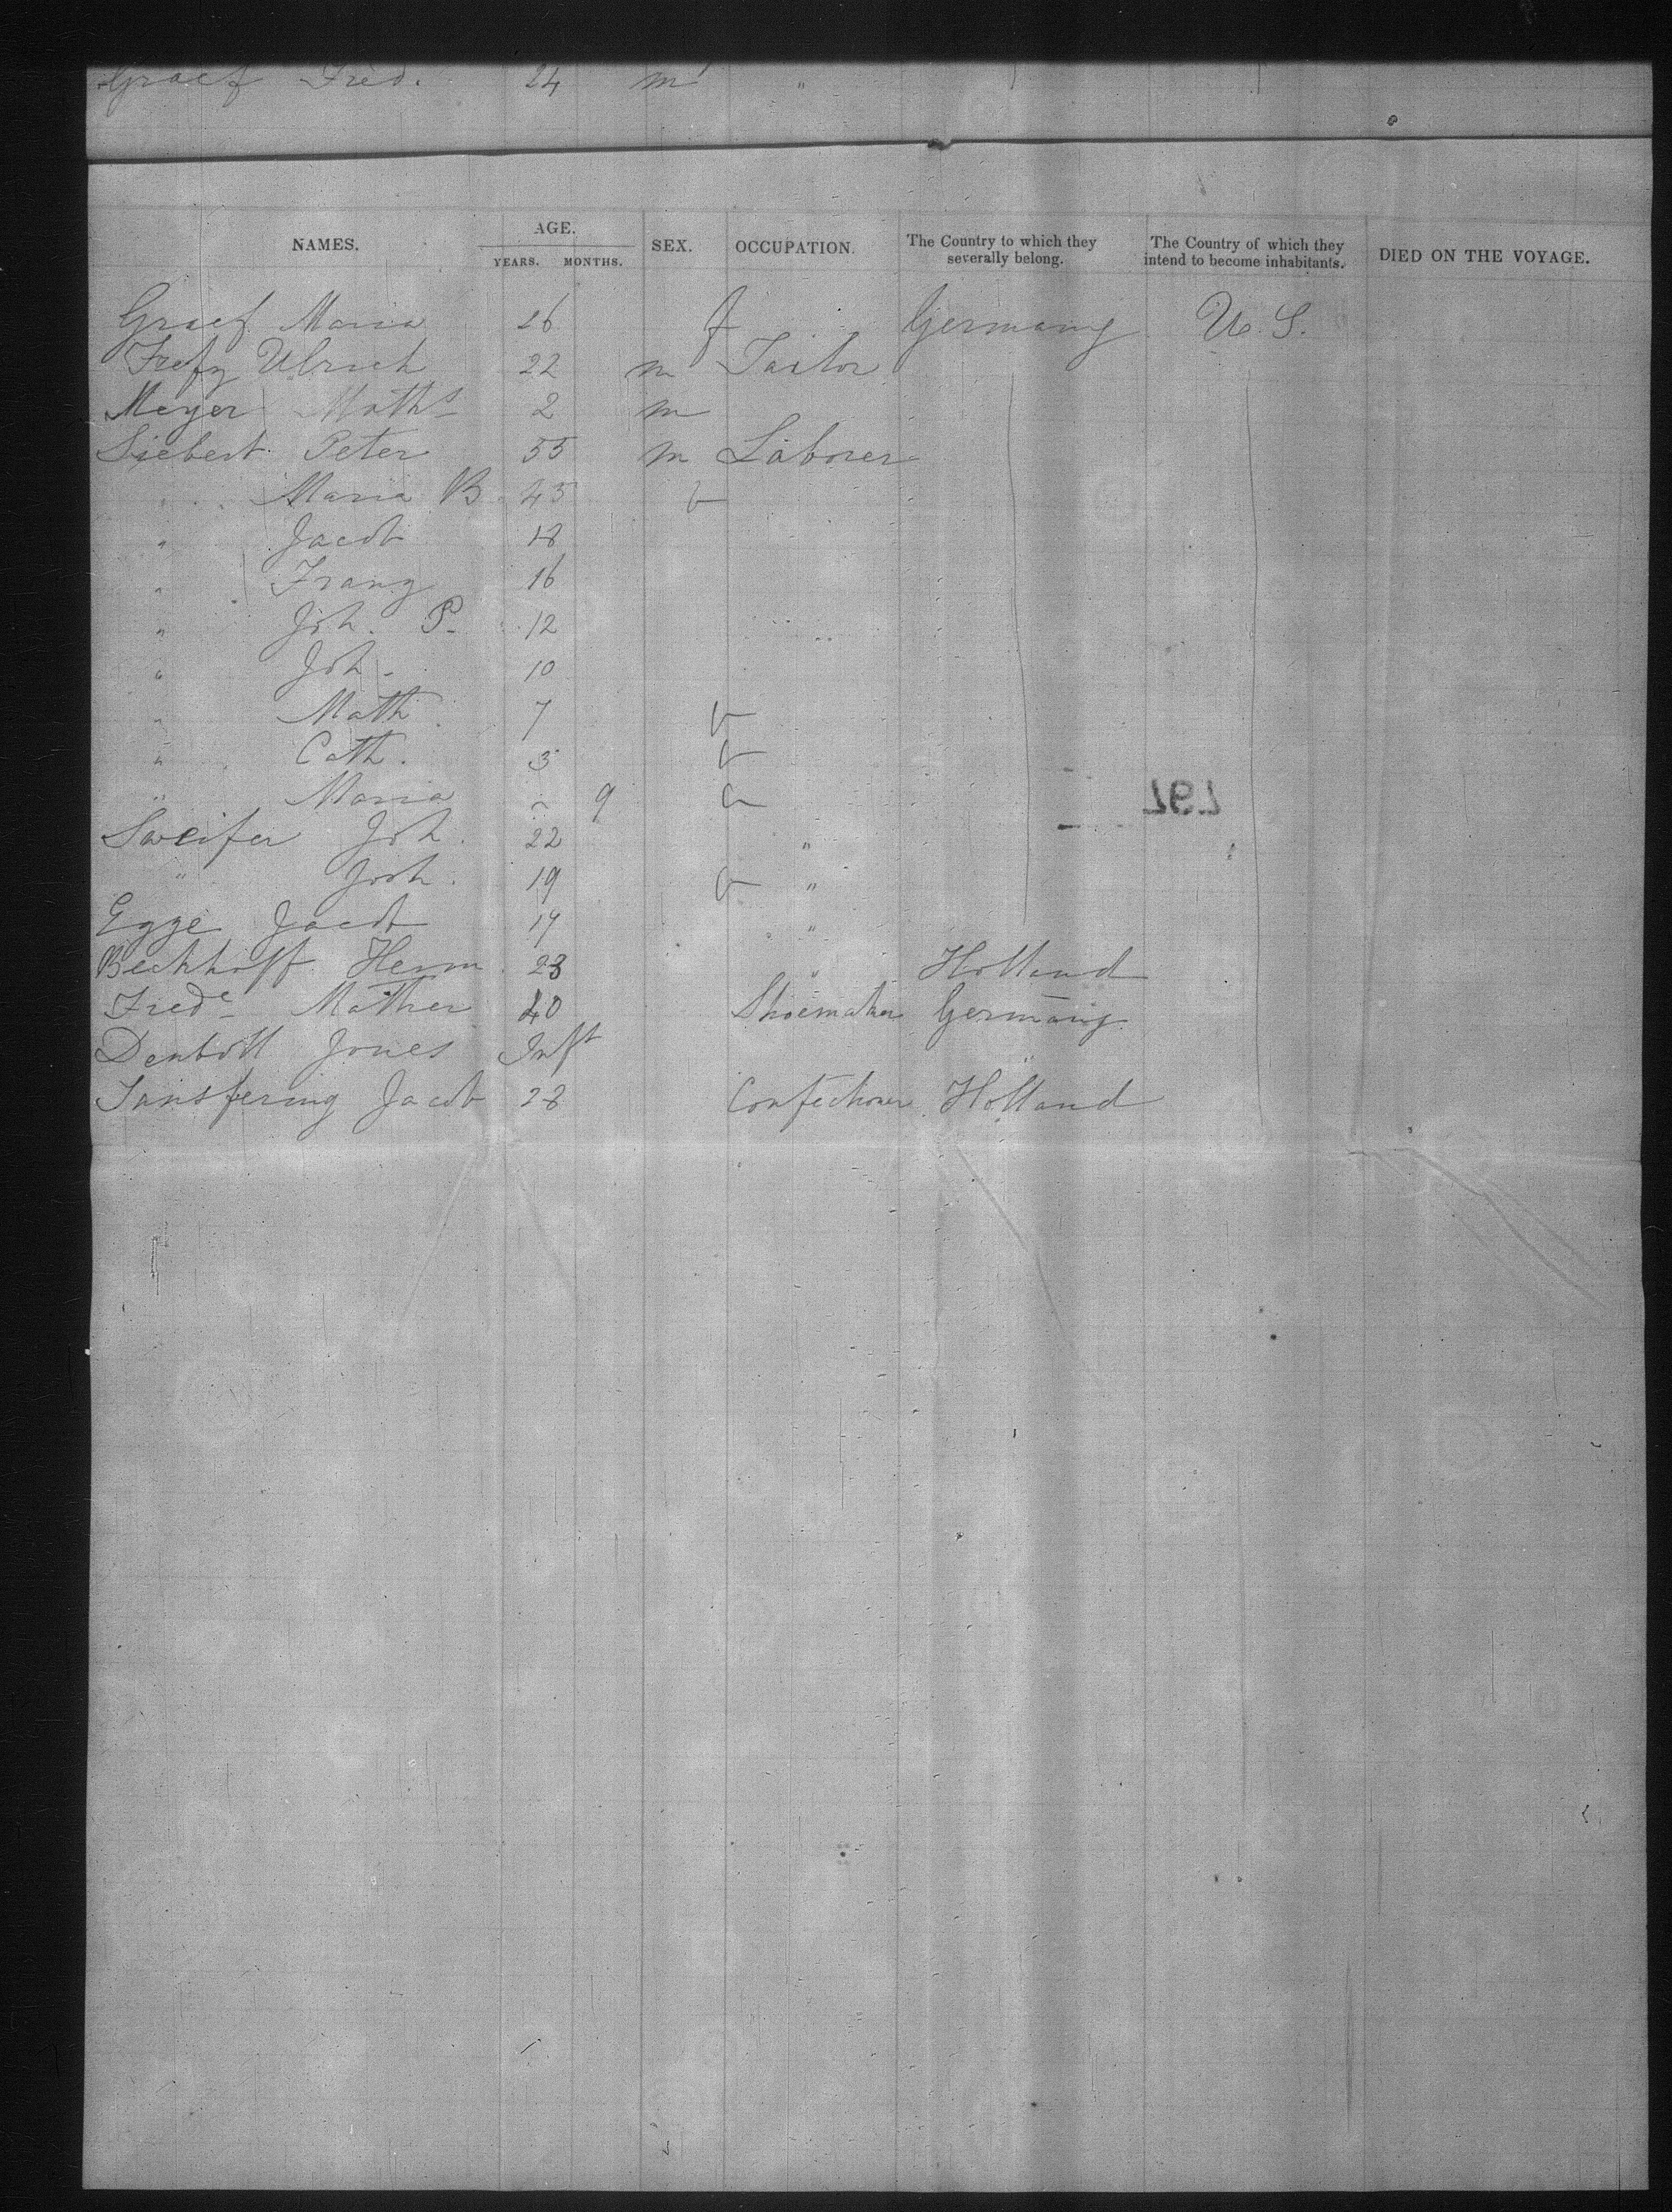 Graef Fred. 24 m "
NAMES. AGE. YEARS. MONTHS. SEX. OCCUPATION. The Country to which they severally belong. The Country of which they intend to become inhabitants. DIED ON THE VOYAGE.
Graef Maria 26 f Germany U.S.
Ulrich 22 m Tailor
Meyer Maths 2 m
Siebert Peter 55 m Laborer
" Maria B 45
" Jacob 18
" Franz 16
" Joh. P. 12
" Joh. 10
" Math 7
" Cath. 3
" Maria 9
Sweifer Joh. 22 "
" Josh. 19 "
Egge Jacob 19 "
Bechhoff Herm 23 " Holland
Frede Mather 40 Shoemaker Germany
Jones Inft
Jacob 28 Confectioner Holland